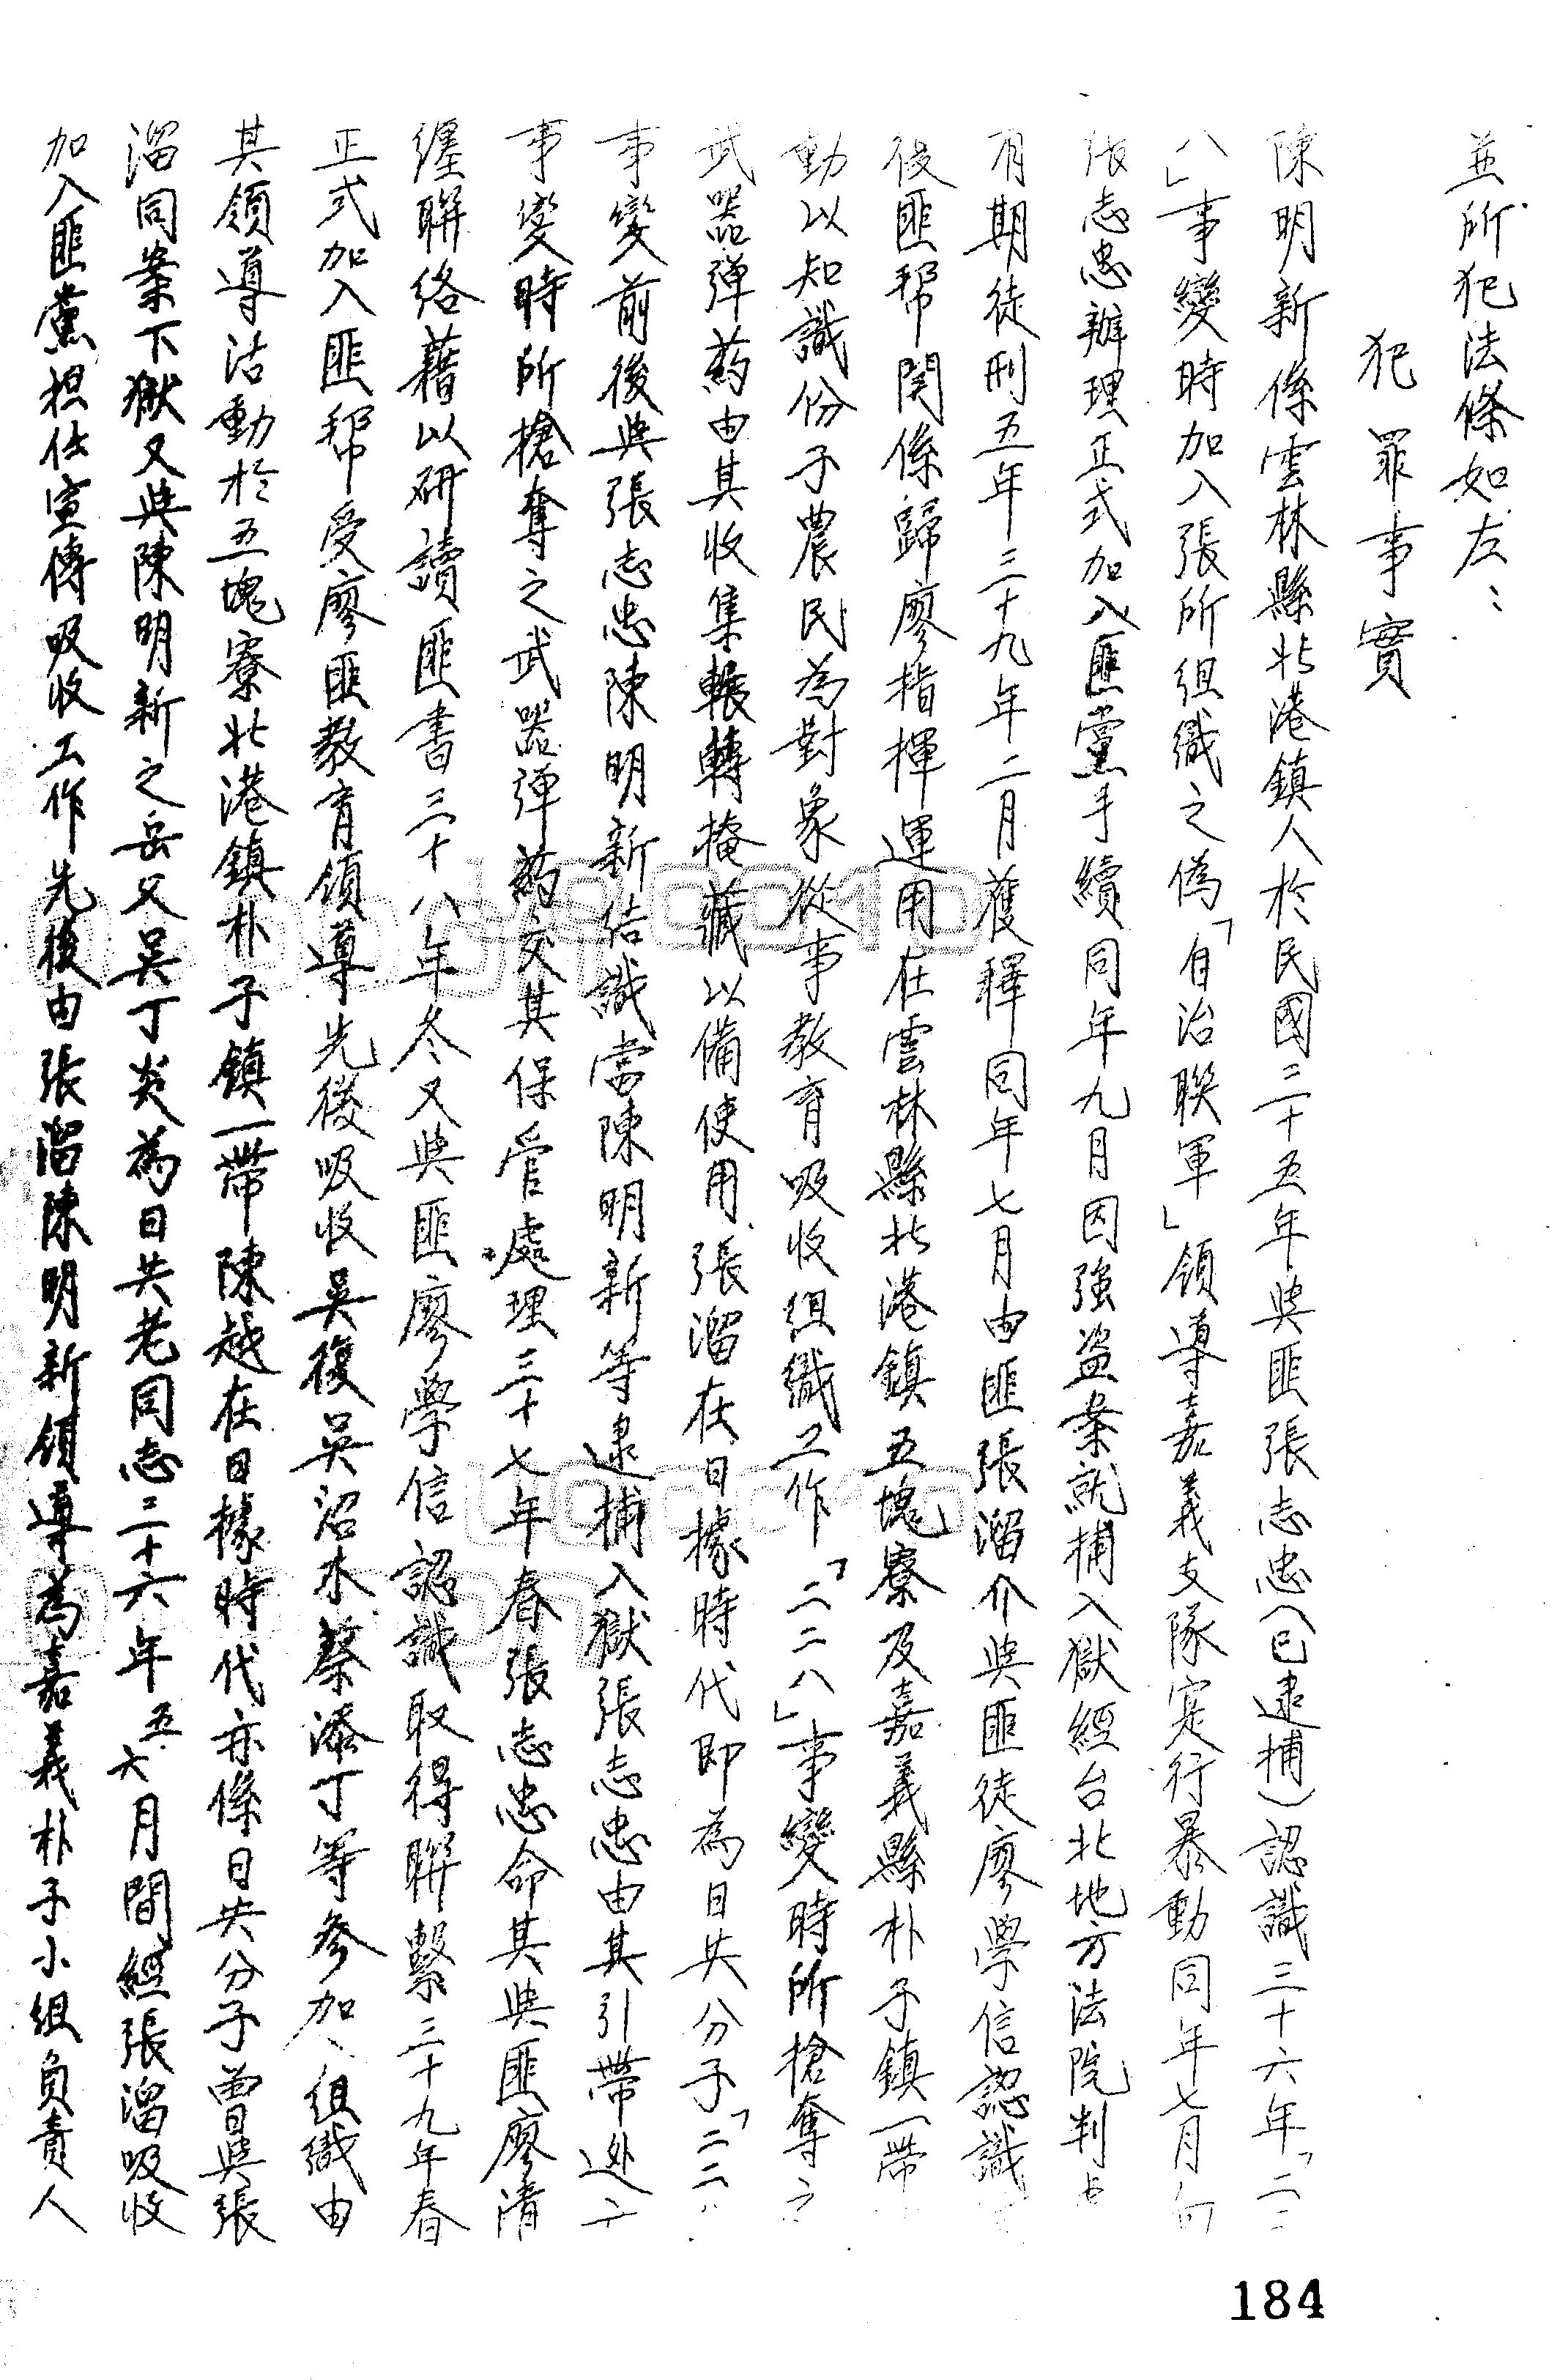 並所犯法條如左：
犯罪事實
陳明新係雲林縣北港鎮人於民國二十五年與匪張志忠（已逮捕）認識三十六年「二二
八」事變時加入張所組織之偽「自治聯軍」領導嘉義支隊實行暴動同年七月向
張志忠辦理正式加入匪黨手續同年九月因強盜案就捕入獄經台北地方法院判處
有期徒刑五年三十九年二月獲釋同年七月由匪張溜介與匪徒廖學信認識
後匪帮関係歸廖指揮運用在雲林縣北港鎮五塊寮及嘉義縣朴子鎮一帶
動以知識份子農民為對象從事教育吸收組織工作「二二八」事變時所槍奪之
武器弹葯由其收集輾轉掩藏以備使用張溜在日據時代即為日共分子「二二八
事變前後與張志忠陳明新結識當陳明新等逮捕入獄張志忠由其引帶逃
事變時所槍奪之武器弹葯交其保管處理三十七年春張志忠命其與匪廖清
纏聨絡藉以研讀匪書三十八年冬又與匪廖學信認識取得聨繫三十九年春
正式加入匪帮受廖匪教育領導先後吸收吳復吳沼水蔡添丁等參加組織由
其領導活動於五塊寮北港鎮朴子鎮一帶陳越在日據時代亦係日共分子曾與張
溜同案下獄又與陳明新之岳父吳丁炎為日共老同志三十六年五六月間經張溜吸收
加入匪黨担任宣傳吸收工作先後由張溜陳明新領導為嘉義朴子小組負責人
184